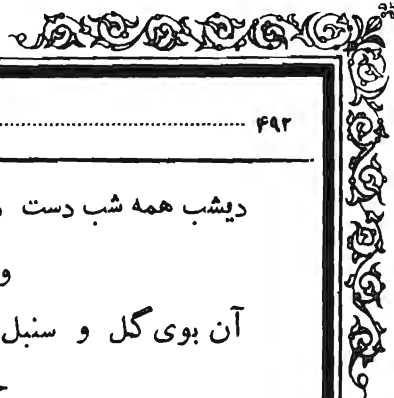 ۴۹۲
دیشب همه شب دست
و
آن بوی گل و سنبل